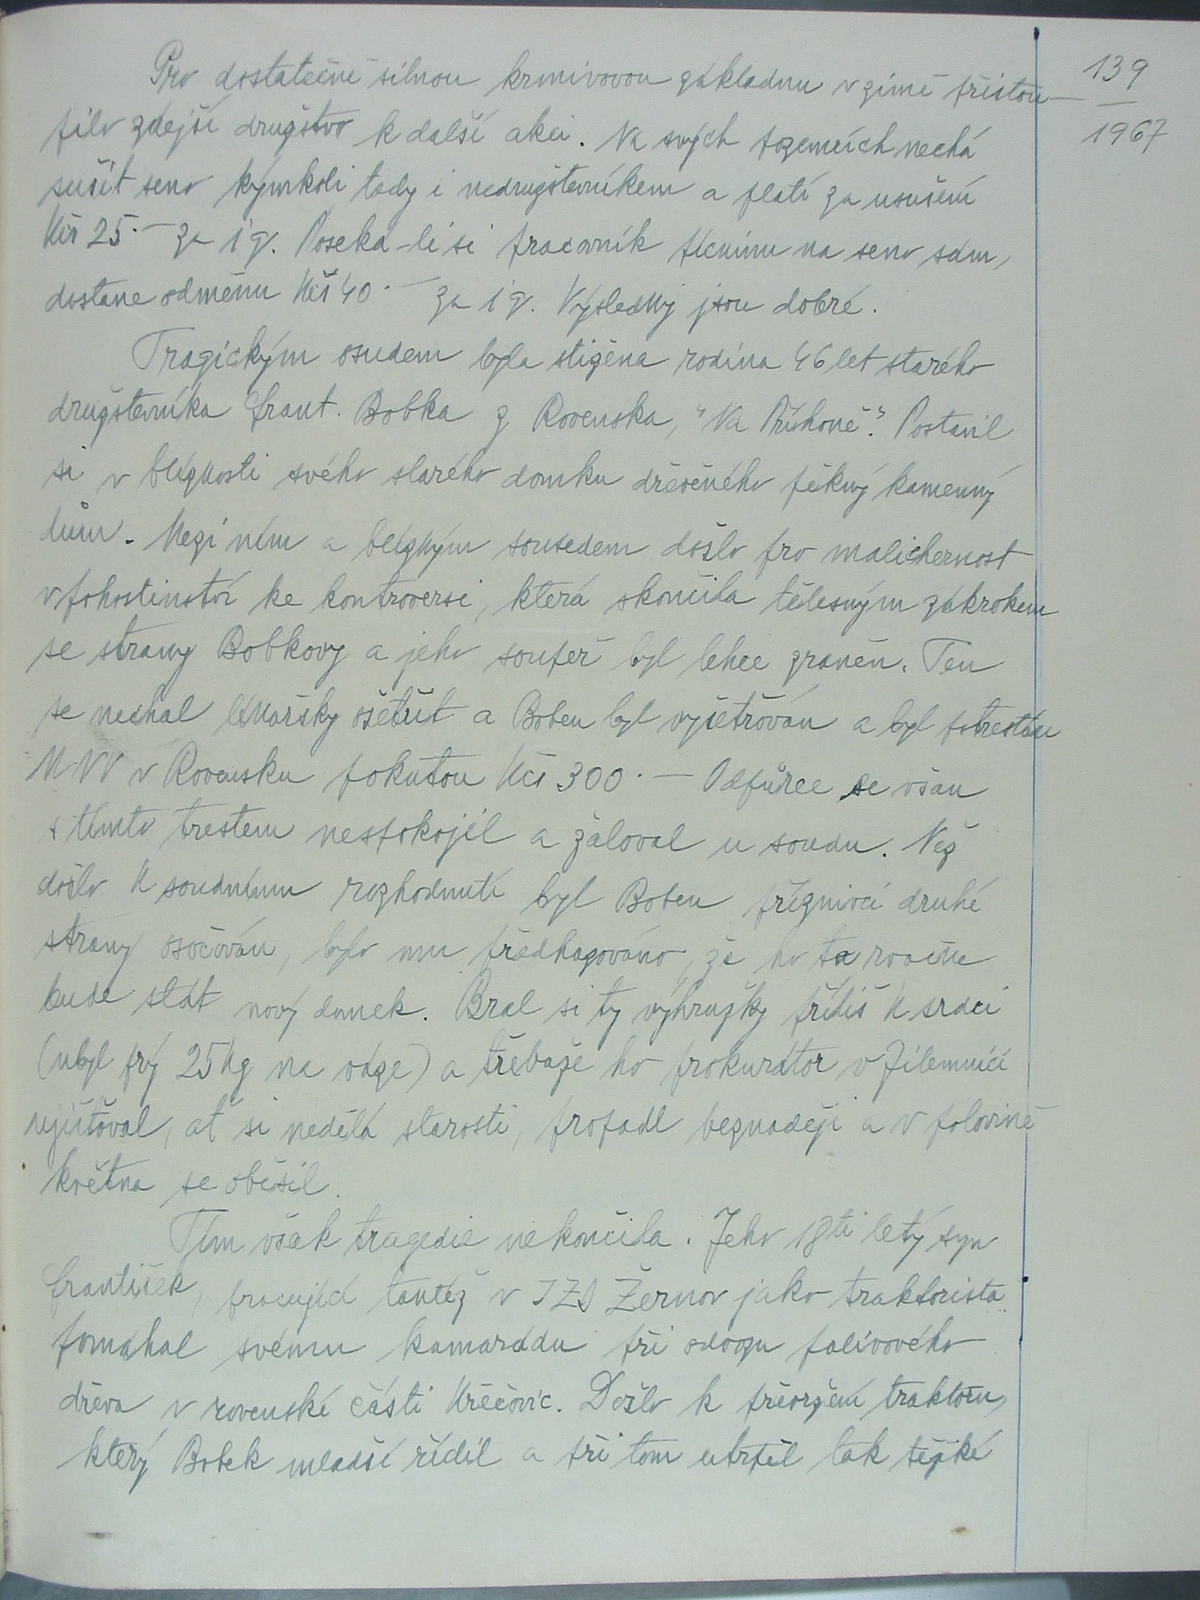 139
1967
Pro dostatečně silnou krmivovou základnu v zimě přistou-
pilo zdejší družstvo k další akci. Na svých pozemcích nechá
sušit seno kýmkoli tedy i nedružstevníkem a platí za usušení
Kčs 25.— za 1 q. Poseká-li si pracovník pícninu na seno sám,
dostane odměnu Kčs 40.— za 1 q. Výsledky jsou dobré.
Tragickým osudem byla stižena rodina 46 let starého
družstevníka Frant. Bobka z Rovenska, "Na Příhoně". Postavil
si v blízkosti svého starého domku dřevěného pěkný kamenný
dům. Mezi ním a blízkým sousedem došlo pro malichernost
v pohostinství ke kontroversi, která skončila tělesným zákrokem
se strany Bobkovy a jeho soupeř byl lehce zraněn. Ten
se nechal lékařsky ošetřit a Bobek byl vyšetřován a byl potrestán
MNV v Rovensku pokutou Kčs 300.— Odpůrce se však
s tímto trestem nespokojil a žaloval u soudu. Než
došlo k soudnímu rozhodnutí byl Bobek příznivci druhé
strany osočován, bylo mu předhazováno, že ho ta rvačka
bude stát nový domek. Bral si ty výhružky příliš k srdci
(ubyl prý 25 kg na váze) a třebaže ho prokurátor v Jilemnici
ujišťoval, ať si nedělá starosti, propadl beznaději a v polovině
května se oběsil.
Tím však tragedie nekončila. Jeho 18ti letý syn
František, pracující tantéž v JZD Žernov jako traktorista
pomáhal svému kamarádu při odvozu palivového
dřeva v rovenské části Křečovic. Došlo k převržení traktoru,
který Bobek mladší řídil a při tom utrpěl tak těžké